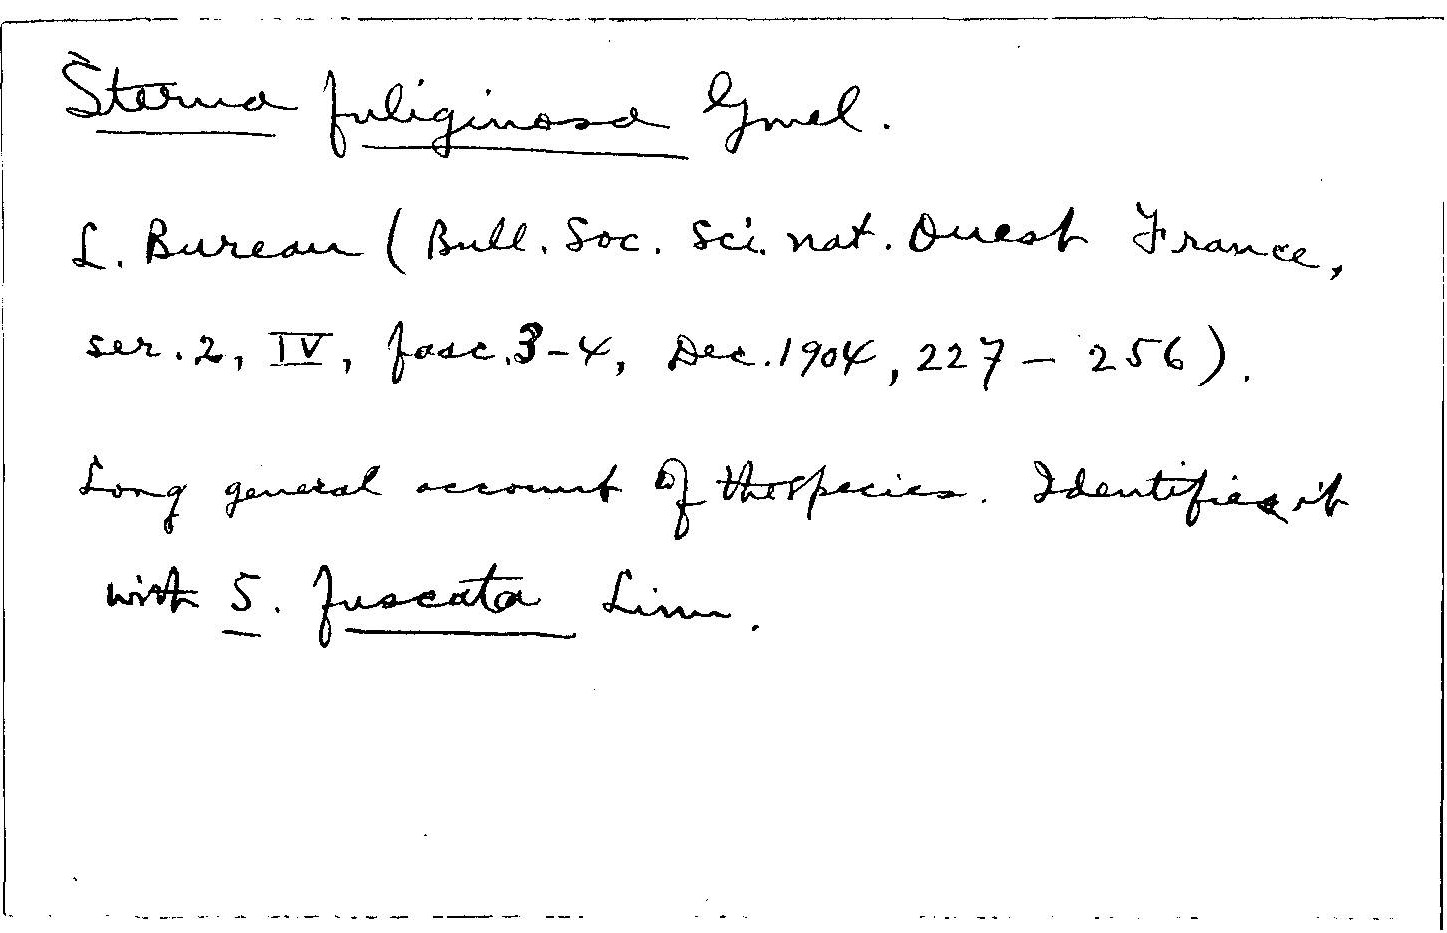 Sterna fuliginosa Gmel.
L. Bureau (Bull. Soc. Sci. nat. Ouest France,
ser. 2, IV, fasc. 3-4, Dec. 1904, 227-256).
Long general account of the species. Identifies it
with S. fuscata Linn.